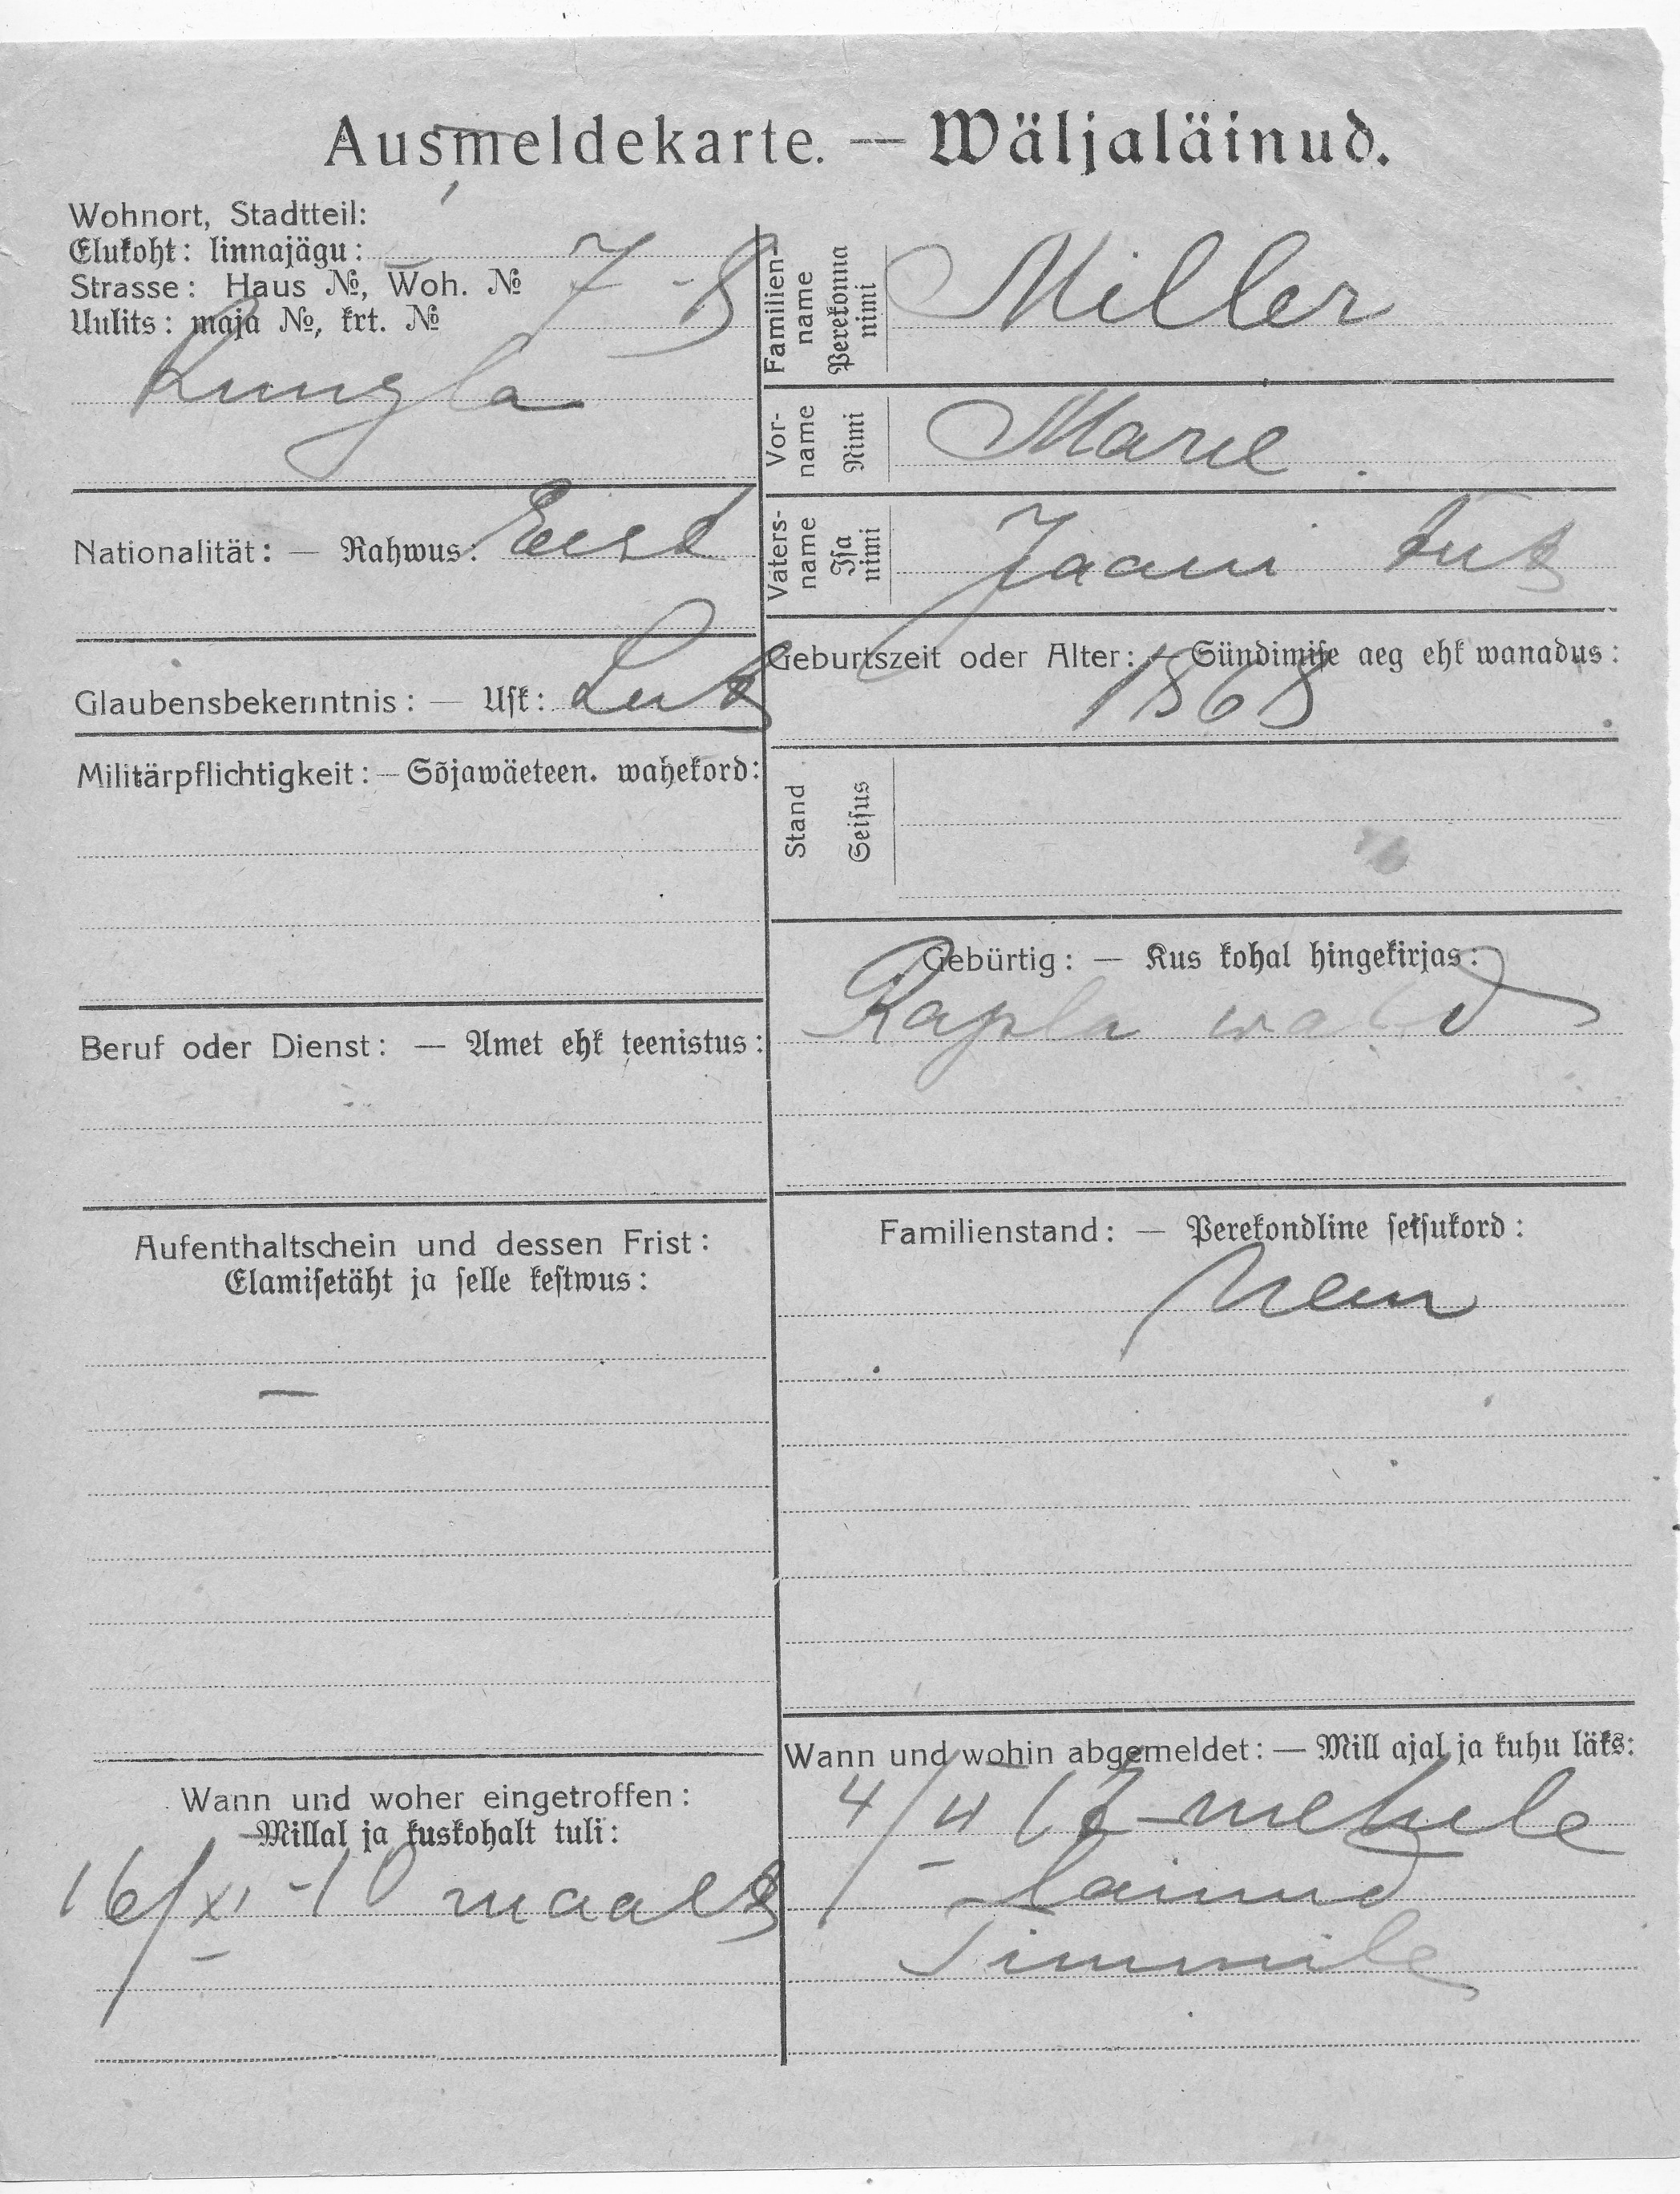 Ausmeldekarte. — Wäljaläinud.
Wohnort, Stadtteil:
Elukoht: linnajägu:
Strasse: Haus №, Woh. №
Uulits: maja №, krt. №
7 - 8
Kungla
Nationalität: — Rahwus: Eest
Glaubensbekenntnis: — Usk: Lut
Militärpflichtigkeit: — Sõjawäeteen. wahekord:
Beruf oder Dienst: — Amet ehk teenistus:
Aufenthaltschein und dessen Frist:
Elamisetäht ja selle kestwus:
—
Wann und woher eingetroffen:
Millal ja kuskohalt tuli:
16/XI - 10 maalt
Familien-
name
Perekonna
nimi
Miller
Vor-
name
Nimi
Marie
Vaters-
name
Isa
nimi
Jaani tüt
Geburtszeit oder Alter: — Sündimise aeg ehk wanadus:
1868
Stand
Seisus
Gebürtig: — Kus kohal hingekirjas:
Rapla wald
Familienstand: — Perekondline seisukord:
Wann und wohin abgemeldet: — Mill ajal ja kuhu läks:
mehele
läinud